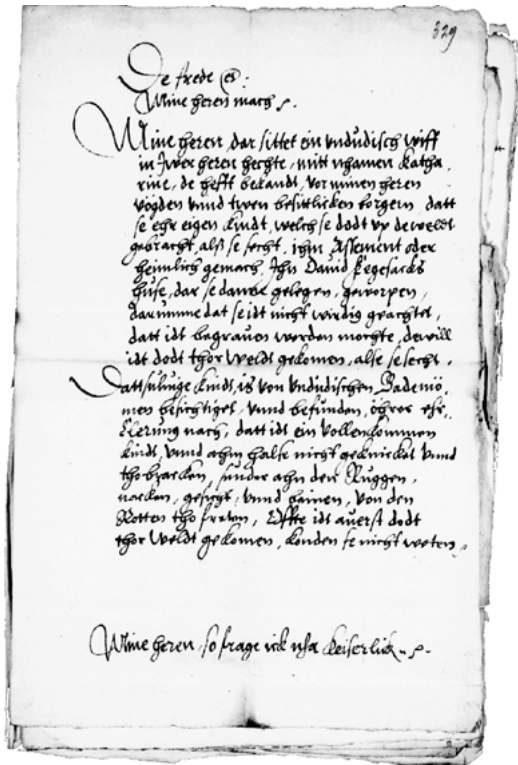 329
De frede es:
Mine heren mach
Mine heren, dar sittet ein vndudisch wiff
in Jwer heren hechte, mitt nhamen Katha
rine, de hefft bekandt, vor minen heren
vögden vnnd twen besittlicken borgern, datt
se ehr eigen kindt, welch se dodt vp de weldt
gebracht, alß se secht, ihm Assement oder
heimlich gemach, Ihn Dauid Kegesacks
huse, dar se gelegen, geworpen,
darumme dat se idt nicht wirdig geachtet,
datt idt begrauen werden mochte, dewill
idt dodt thor weldt gekomen, alse se secht.
Dattsuluige kindt, is von vndudischen Bademö,
men besichtiget, vnnd befunden, öhrer erk,
klerung nach, datt idt ein vollenkommen
kindt, vnnd ahm halse nicht geknicket vnnd
thobraecken, sunder ahn den Ruggen,
nacken, gesicht, vnnd beinen, von den
Rotten tho freten, Effte idt auerst dodt
thor weldt gekomen, konden se nicht weten
Mine heren, so frage ick nha keiserlick